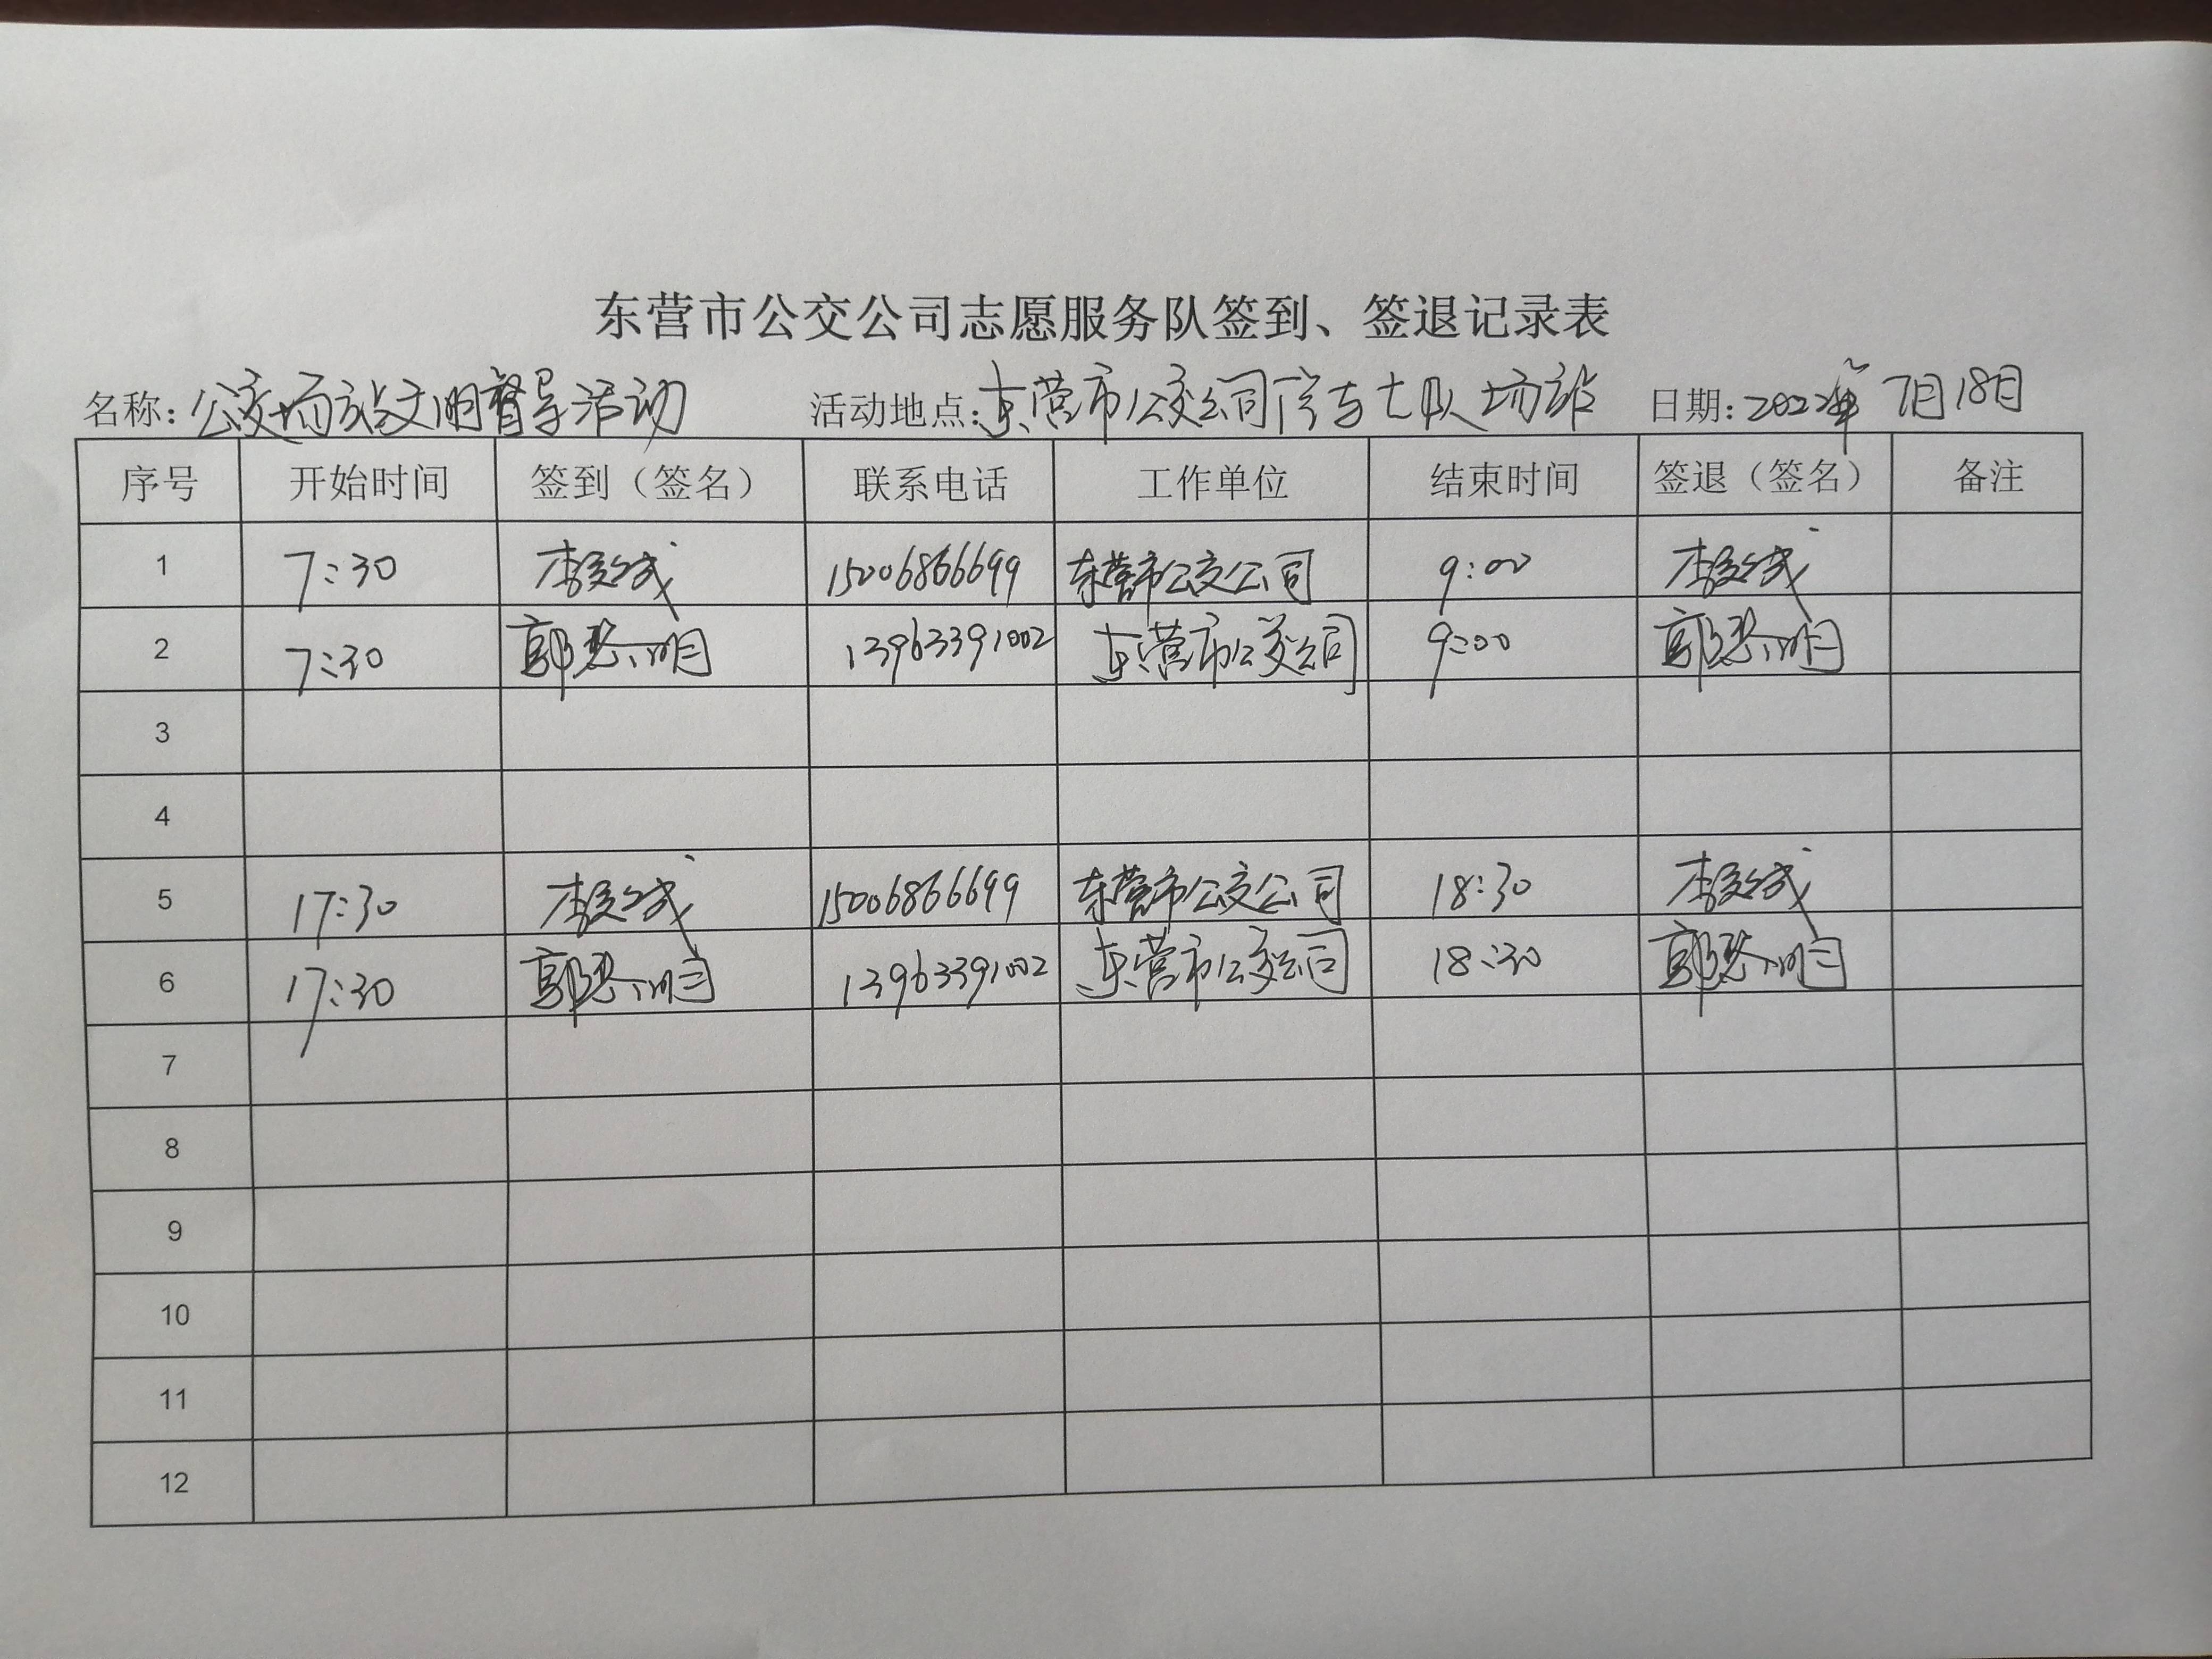 东营市公交公司志愿服务队签到、签退记录表
名称: 公交场站文明督导活动 活动地点: 东营市公交公司 七队场站 日期: 2022年7月18日
序号 开始时间 签到（签名） 联系电话 工作单位 结束时间 签退（签名） 备注
1 7:30 李 15006866699 东营市公交公司 9:00 李
2 7:30 郭 明 13963391002 东营市公交公司 9:00 郭 明
3
4
5 17:30 李 15006866699 东营市公交公司 18:30 李
6 17:30 郭 明 13963391002 东营市公交公司 18:30 郭 明
7
8
9
10
11
12